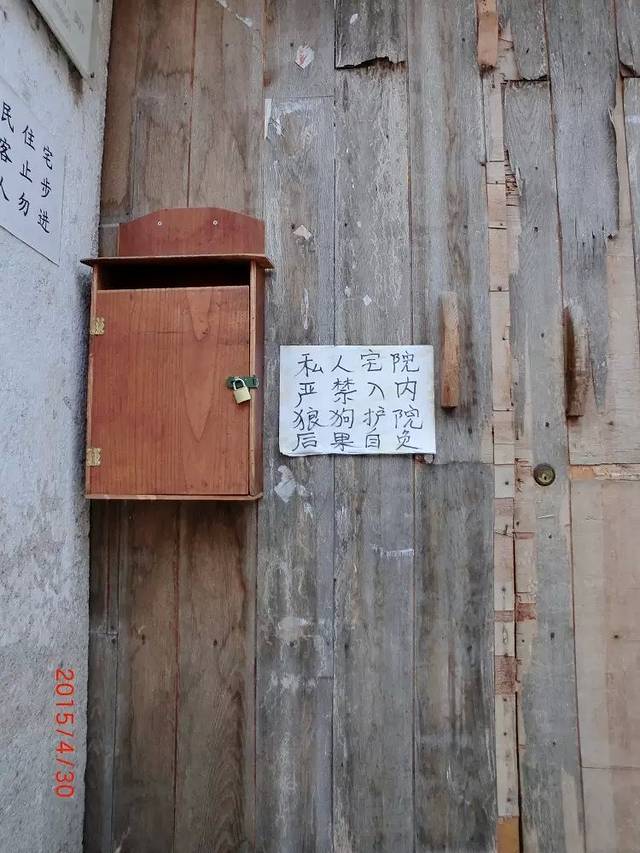 民住宅
客止步
人勿进
私人宅院
严禁入内
狼狗护院
后果自负
2015/4/30